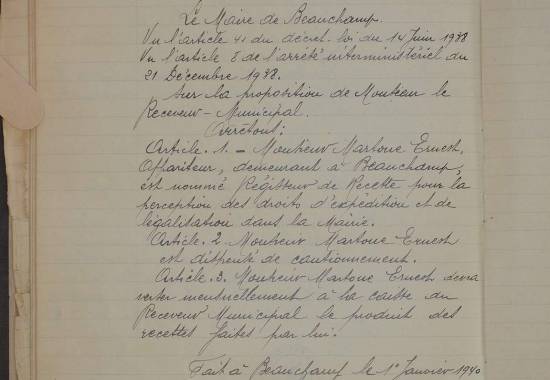 Le Maire de Beauchamp.
Vu l'article 41 du décret-loi du 14 Juin 1938
Vu l'article 8 de l'arrêté interministériel du
21 Décembre 1938.
Sur la proposition de Monsieur le
Receveur-Municipal.
Arrêtons:
Article. 1. - Monsieur Martone Ernest,
demeurant à Beauchamp,
est nommé Régisseur de Recette pour la
perception des droits d'expédition et de
légalisation dans la Mairie.
Article. 2 Monsieur Martone Ernest
est dispensé de cautionnement.
Article. 3. Monsieur Martone Ernest devra
verser mensuellement à la caisse du
Receveur Municipal le produit des
recettes faites par lui.
Fait à Beauchamp le 1° Janvier 1940